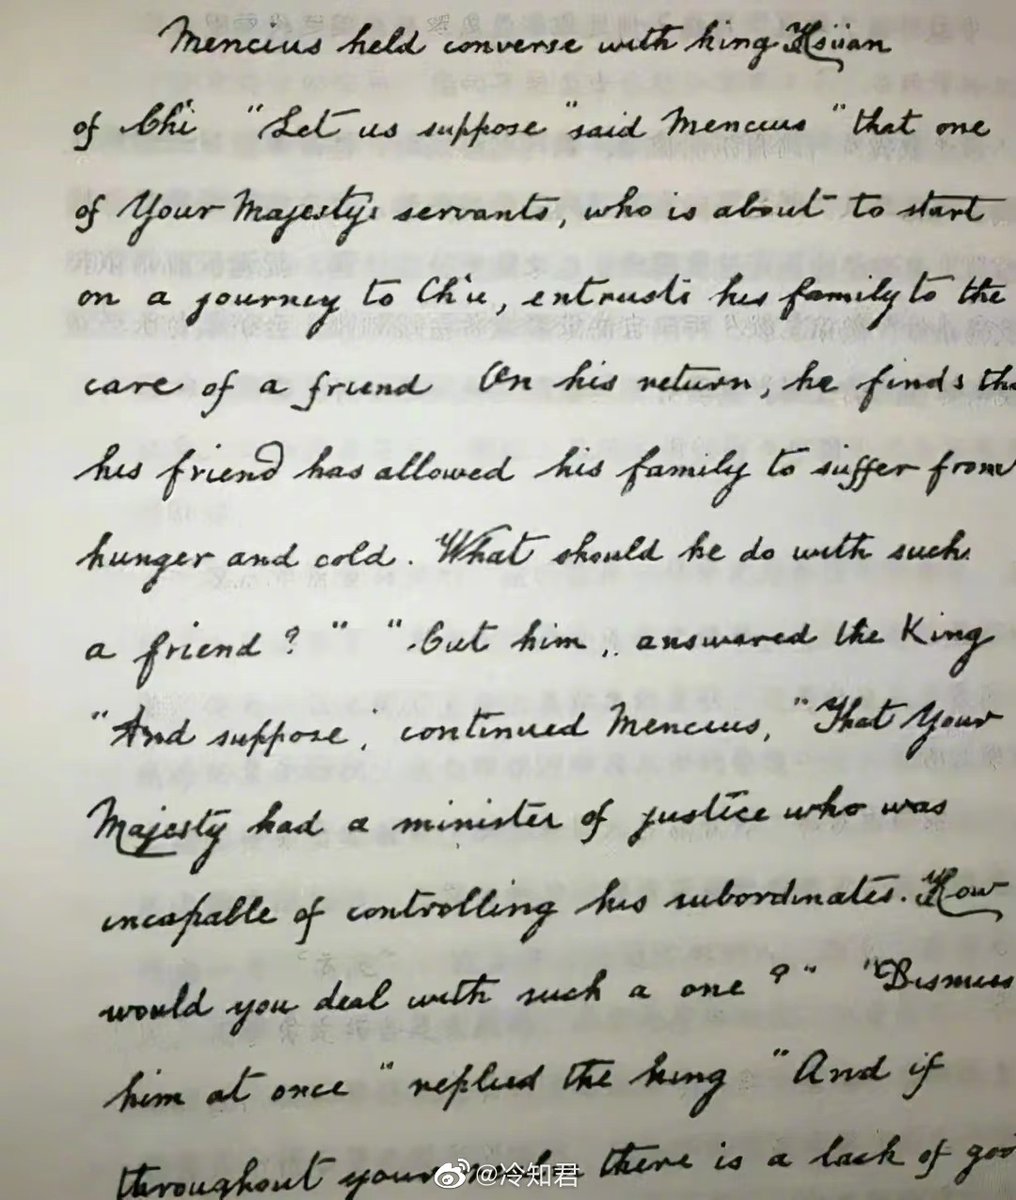 Mencius held converse with king Hsüan
of Ch'i "Let us suppose" said Mencius "that one
of Your Majesty's servants, who is about to start
on a journey to Ch'u, entrusts his family to the
care of a friend On his return, he finds tha
his friend has allowed his family to suffer from
hunger and cold. What should he do with such
a friend?" "Cut him, answered the King
"And suppose," continued Mencius, "That Your
Majesty had a minister of justice who was
incapable of controlling his subordinates. How
would you deal with such a one?" "Dismiss
him at once" replied the king "And if
throughout your there is a lack of goo
@冷知君